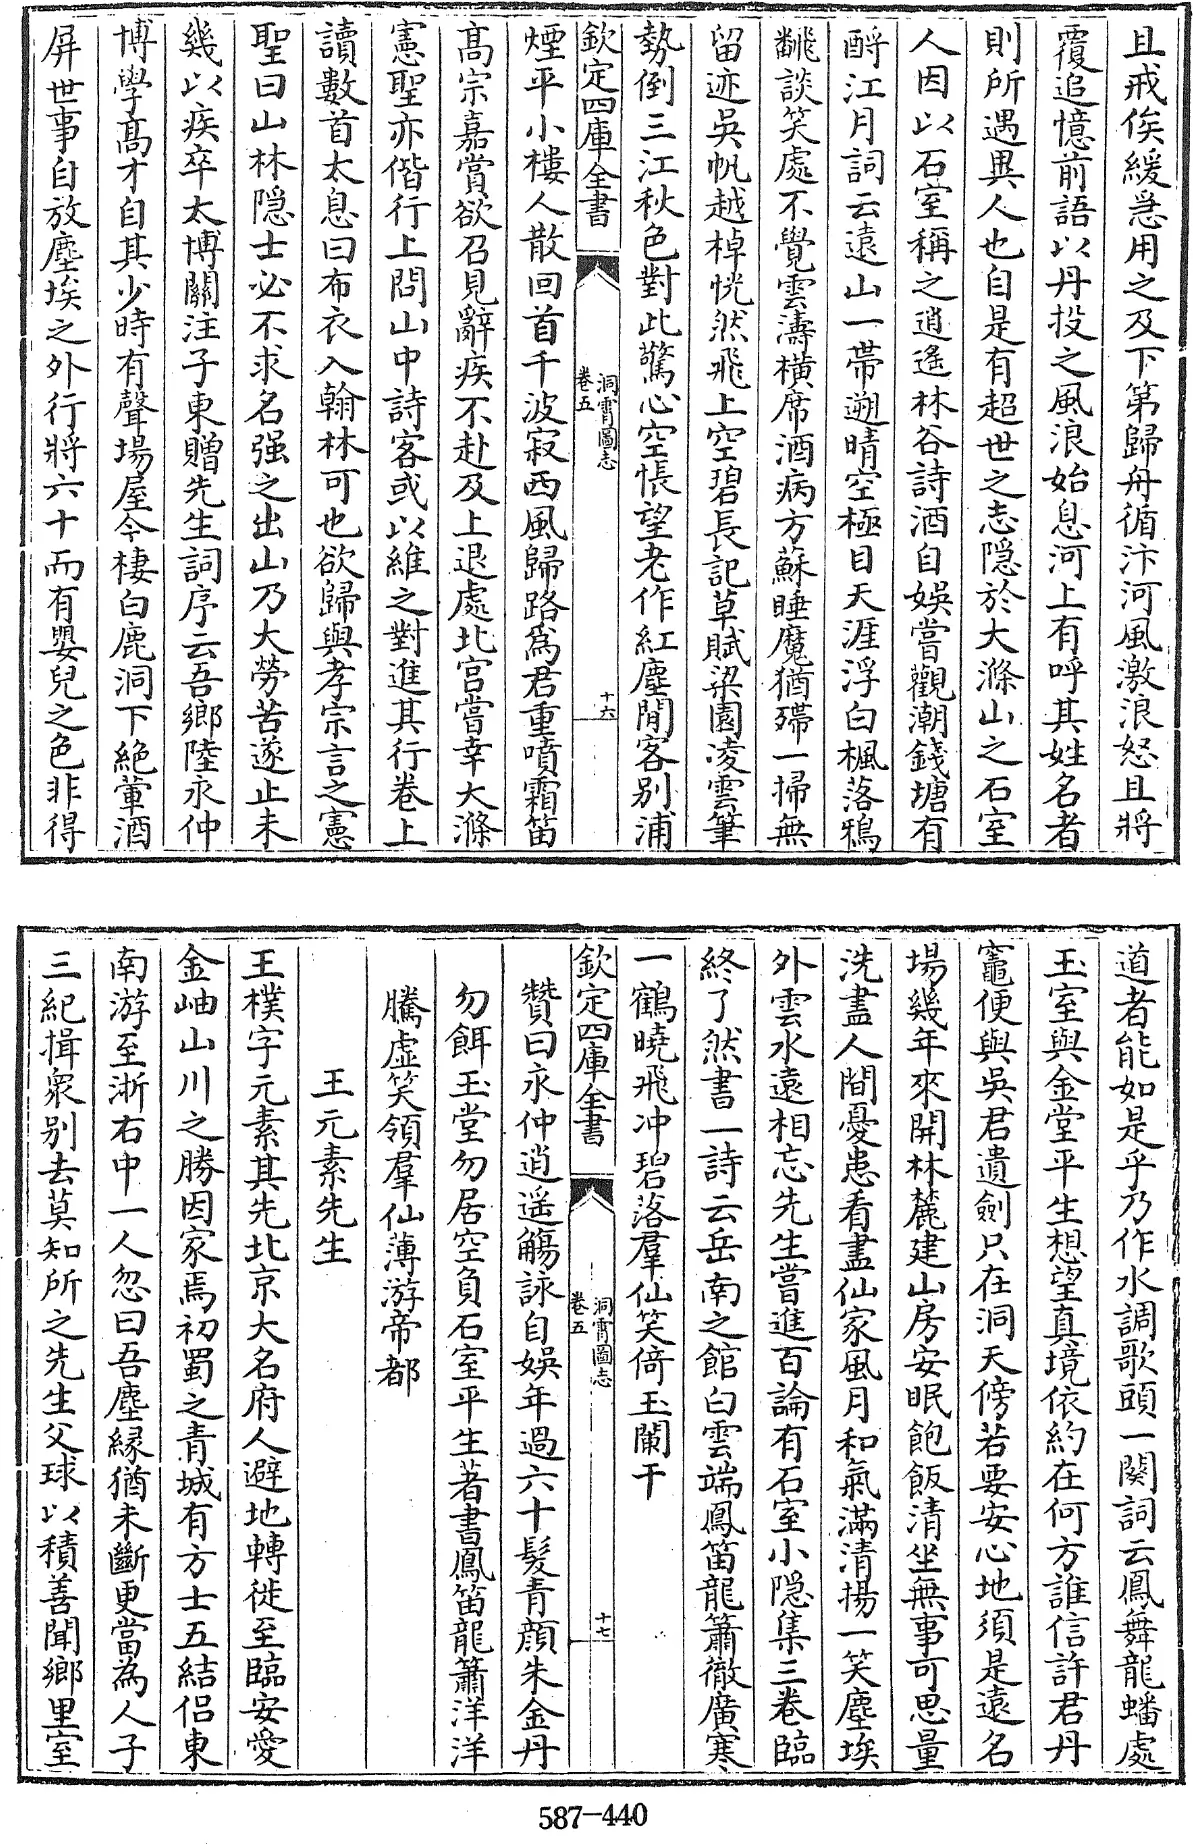 且戒俟緩急用之及下第歸舟循汴河風激浪怒且將
覆追憶前語以丹投之風浪始息河上有呼其姓名者
則所遇異人也自是有超世之志隠於大滌山之石室
人因以石室稱之逍遙林谷詩酒自娛嘗觀潮錢塘有
酹江月詞云遠山一帶遡晴空極目天涯浮白楓落鴉
翻談笑處不覺雲濤橫席酒病方蘇睡魔猶殢一掃無
留迹吳帆越棹恍然飛上空碧長記草賦梁園凌雲筆
勢倒三江秋色對此驚心空悵望老作紅塵閒客别浦
欽定四庫全書
洞霄圖志
卷五
十六
煙平小樓人散回首千波寂西風歸路為君重噴霜笛
髙宗嘉賞欲召見辭疾不赴及上退處北宫嘗幸大滌
憲聖亦偕行上問山中詩客或以維之對進其行卷上
讀數首太息曰布衣入翰林可也欲歸與孝宗言之憲
聖曰山林隠士必不求名强之出山乃大勞苦遂止未
幾以疾卒太博關注子東贈先生詞序云吾鄉陸永仲
博學髙才自其少時有聲場屋今棲白鹿洞下絶葷酒
屏世事自放塵埃之外行將六十而有嬰兒之色非得
道者能如是乎乃作水調歌頭一闋詞云鳳舞龍蟠處
玉室與金堂平生想望真境依約在何方誰信許君丹
竈便與吳君遺劍只在洞天傍若要安心地須是遠名
場幾年來開林麓建山房安眠飽飯清坐無事可思量
洗盡人間憂患看盡仙家風月和氣滿清揚一笑塵埃
外雲水遠相忘先生嘗進百論有石室小隠集三卷臨
終了然書一詩云岳南之館白雲端鳳笛龍簫徹廣寒
一鶴曉飛冲碧落羣仙笑倚玉闌干
欽定四庫全書
洞霄圖志
卷五
十七
贊曰永仲逍遥觴詠自娛年過六十髮青顔朱金丹
勿餌玉堂勿居空負石室平生著書鳳笛龍簫洋洋
騰虛笑領羣仙薄游帝都
王元素先生
王樸字元素其先北京大名府人避地轉徙至臨安愛
金岫山川之勝因家焉初蜀之青城有方士五結侣東
南游至淅右中一人忽曰吾塵緣猶未斷更當為人子
三紀揖衆别去莫知所之先生父球以積善聞鄉里室
587-440